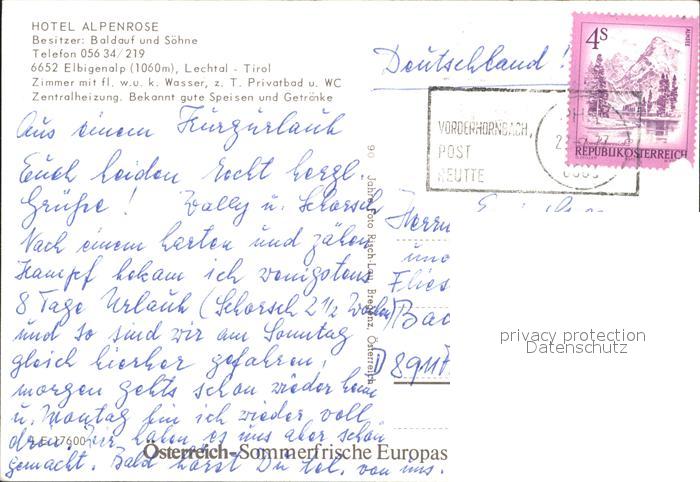 HOTEL ALPENROSE
Besitzer: Baldauf und Söhne
Telefon 056 34 / 219
6652 Elbigenalp (1060m), Lechtal - Tirol
Zimmer mit fl. w. u. k. Wasser, z. T. Privatbad u. WC
Zentralheizung. Bekannt gute Speisen und Getränke
Deutschland!
4S
ALMSEE
REPUBLIK ÖSTERREICH
VORDERHORNBACH,
POST
REUTTE
Aus einem Kurzurlaub
Euch beiden recht herzl.
Grüße! Wally u. Schorsch
Nach einem harten und zähen
Kampf bekam ich wenigstens
8 Tage Urlaub (Schorsch 2 1/2 Wochen)
und so sind wir am Sonntag
gleich hierher gefahren,
morgen gehts schon wieder heim
u. Montag bin ich wieder voll
drin. Wir haben es uns aber schön
gemacht. Bald hörst Du tel. von uns.
Herrn
und
Flies
Bac
8911
Risch-Lau, Bregenz, Österreich
17600
Österreich-Sommerfrische Europas
privacy protection
Datenschutz